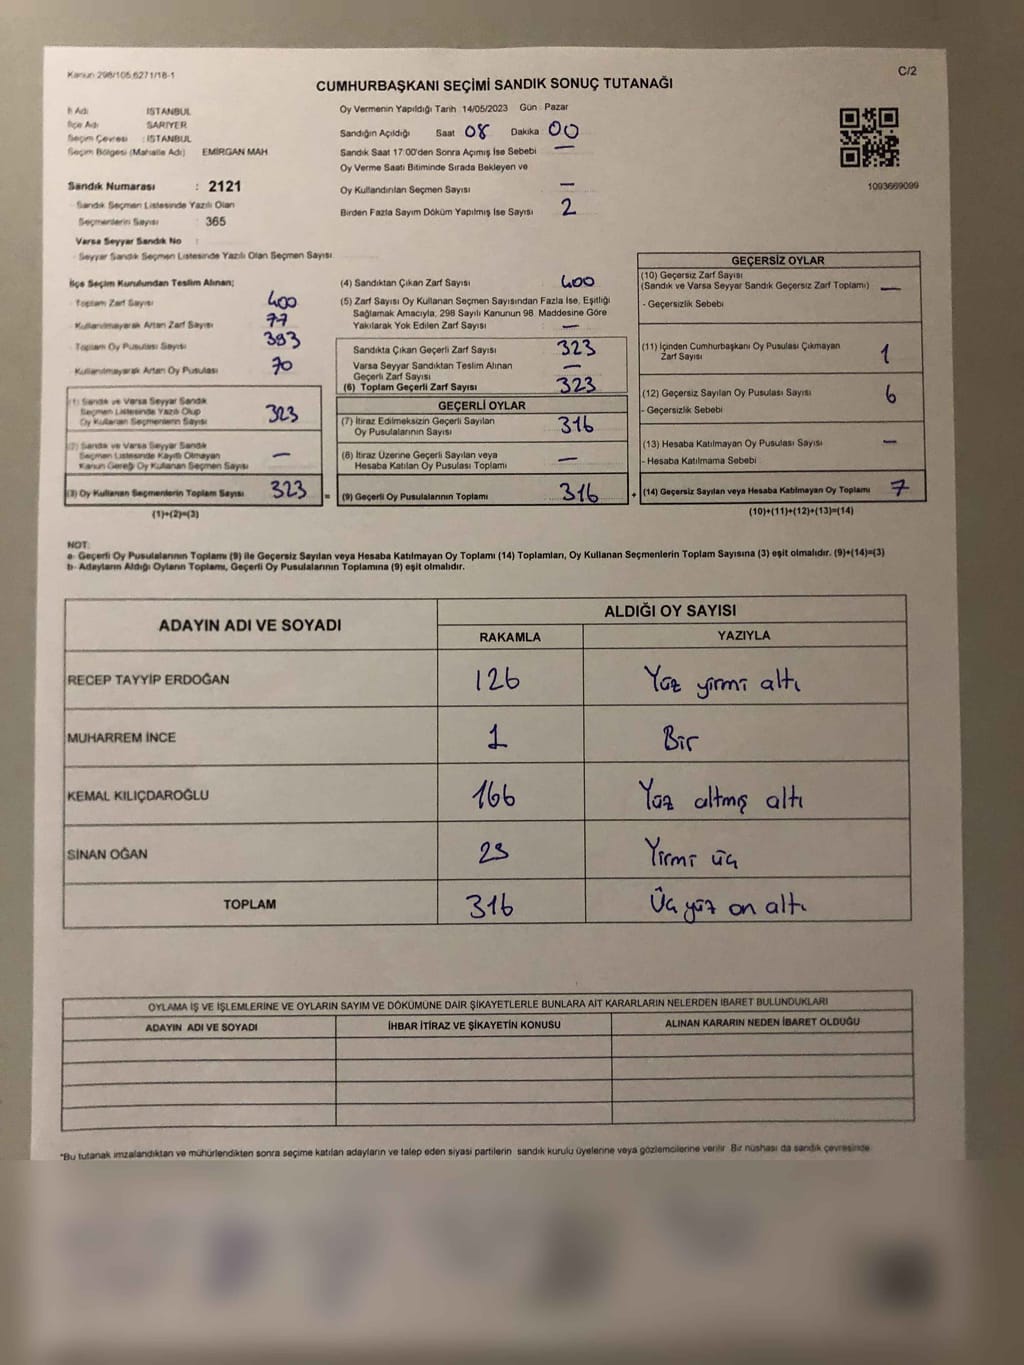 Kanun 298/105,6271/18-1
C/2
CUMHURBAŞKANI SEÇİMİ SANDIK SONUÇ TUTANAĞI
İl Adı İSTANBUL
İlçe Adı SARIYER
Seçim Çevresi : İSTANBUL
Seçim Bölgesi (Mahalle Adı) EMİRGAN MAH
Sandık Numarası : 2121
Sandık Seçmen Listesinde Yazılı Olan
Seçmenlerin Sayısı : 365
Varsa Seyyar Sandık No :
Seyyar Sandık Seçmen Listesinde Yazılı Olan Seçmen Sayısı
Oy Vermenin Yapıldığı Tarih 14/05/2023 Gün : Pazar
Sandığın Açıldığı Saat 08 Dakika 00
Sandık Saat 17:00'den Sonra Açımış İse Sebebi —
Oy Verme Saati Bitiminde Sırada Bekleyen ve
Oy Kullandırılan Seçmen Sayısı —
Birden Fazla Sayım Döküm Yapılmış İse Sayısı 2
1093669099
İlçe Seçim Kurulundan Teslim Alınan;
Toplam Zarf Sayısı 400
Kullanılmayarak Artan Zarf Sayısı 77
Toplam Oy Pusulası Sayısı 393
Kullanılmayarak Artan Oy Pusulası 70
(1) Sandık ve Varsa Seyyar Sandık
Seçmen Listesinde Yazılı Olup
Oy Kullanan Seçmenlerin Sayısı 323
(2) Sandık ve Varsa Seyyar Sandık
Seçmen Listesinde Kayıtlı Olmayan
Kanun Gereği Oy Kullanan Seçmen Sayısı —
(3) Oy Kullanan Seçmenlerin Toplam Sayısı 323 =
(1)+(2)=(3)
(4) Sandıktan Çıkan Zarf Sayısı 400
(5) Zarf Sayısı Oy Kullanan Seçmen Sayısından Fazla İse, Eşitliği
Sağlamak Amacıyla, 298 Sayılı Kanunun 98. Maddesine Göre
Yakılarak Yok Edilen Zarf Sayısı —
Sandıkta Çıkan Geçerli Zarf Sayısı 323
Varsa Seyyar Sandıktan Teslim Alınan
Geçerli Zarf Sayısı —
(6) Toplam Geçerli Zarf Sayısı 323
GEÇERLİ OYLAR
(7) İtiraz Edilmeksizin Geçerli Sayılan
Oy Pusulalarının Sayısı 316
(8) İtiraz Üzerine Geçerli Sayılan veya
Hesaba Katılan Oy Pusulası Toplamı —
(9) Geçerli Oy Pusulalarının Toplamı 316 +
GEÇERSİZ OYLAR
(10) Geçersiz Zarf Sayısı
(Sandık ve Varsa Seyyar Sandık Geçersiz Zarf Toplamı) —
- Geçersizlik Sebebi
(11) İçinden Cumhurbaşkanı Oy Pusulası Çıkmayan
Zarf Sayısı 1
(12) Geçersiz Sayılan Oy Pusulası Sayısı 6
- Geçersizlik Sebebi
(13) Hesaba Katılmayan Oy Pusulası Sayısı —
- Hesaba Katılmama Sebebi
(14) Geçersiz Sayılan veya Hesaba Katılmayan Oy Toplamı 7
(10)+(11)+(12)+(13)=(14)
NOT:
a- Geçerli Oy Pusulalarının Toplamı (9) ile Geçersiz Sayılan veya Hesaba Katılmayan Oy Toplamı (14) Toplamları, Oy Kullanan Seçmenlerin Toplam Sayısına (3) eşit olmalıdır. (9)+(14)=(3)
b- Adayların Aldığı Oyların Toplamı, Geçerli Oy Pusulalarının Toplamına (9) eşit olmalıdır.
ADAYIN ADI VE SOYADI
ALDIĞI OY SAYISI
RAKAMLA YAZIYLA
RECEP TAYYİP ERDOĞAN 126 Yüz yirmi altı
MUHARREM İNCE 1 Bir
KEMAL KILIÇDAROĞLU 166 Yüz altmış altı
SİNAN OĞAN 23 Yirmi üç
TOPLAM 316 Üç yüz on altı
OYLAMA İŞ VE İŞLEMLERİNE VE OYLARIN SAYIM VE DÖKÜMÜNE DAİR ŞİKAYETLERLE BUNLARA AİT KARARLARIN NELERDEN İBARET BULUNDUKLARI
ADAYIN ADI VE SOYADI İHBAR İTİRAZ VE ŞİKAYETİN KONUSU ALINAN KARARIN NEDEN İBARET OLDUĞU
*Bu tutanak imzalandıktan ve mühürlendikten sonra seçime katılan adayların ve talep eden siyasi partilerin sandık kurulu üyelerine veya gözlemcilerine verilir. Bir nüshası da sandık çevresinde